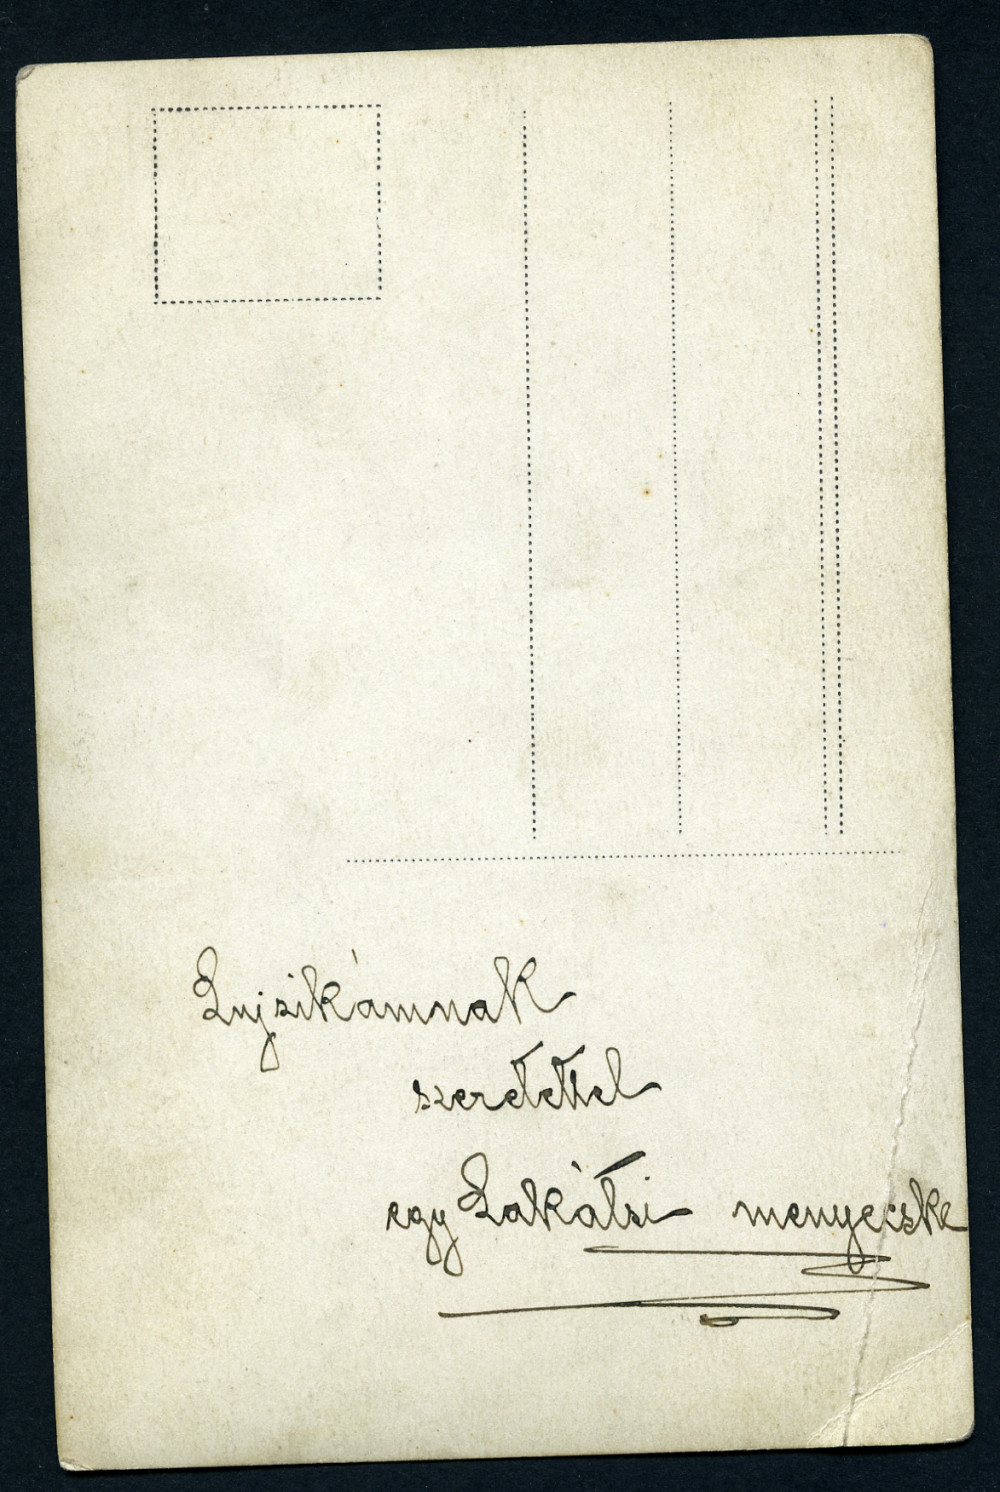 Lujzikámnak
szeretettel
egy Lakátsi menyecske